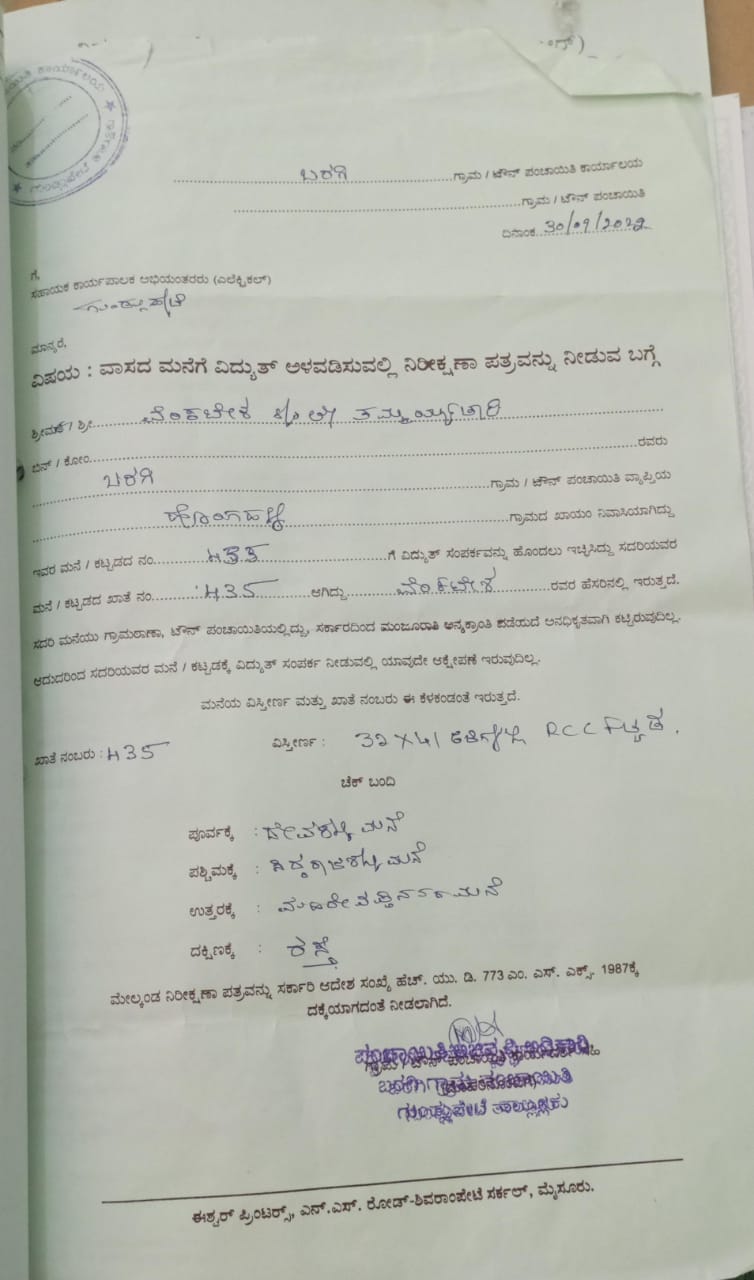 ಬರಗಿ ಗ್ರಾಮ / ಟೌನ್ ಪಂಚಾಯಿತಿ ಕಾರ್ಯಾಲಯ
ಗ್ರಾಮ / ಟೌನ್ ಪಂಚಾಯಿತಿ
ದಿನಾಂಕ 30/09/2022
ಗೆ,
ಸಹಾಯಕ ಕಾರ್ಯಪಾಲಕ ಅಭಿಯಂತರರು (ಎಲೆಕ್ಟ್ರಿಕಲ್)
ಗುಂಡ್ಲುಪೇಟೆ
ಮಾನ್ಯರೆ,
ವಿಷಯ : ವಾಸದ ಮನೆಗೆ ವಿದ್ಯುತ್ ಅಳವಡಿಸುವಲ್ಲಿ ನಿರೀಕ್ಷಣಾ ಪತ್ರವನ್ನು ನೀಡುವ ಬಗ್ಗೆ
ಶ್ರೀಮತಿ / ಶ್ರೀ ವೆಂಕಟೇಶ
ಬಿನ್ / ಕೋಂ ರವರು
ಬರಗಿ ಗ್ರಾಮ / ಟೌನ್ ಪಂಚಾಯಿತಿ ವ್ಯಾಪ್ತಿಯ
ಗ್ರಾಮದ ಖಾಯಂ ನಿವಾಸಿಯಾಗಿದ್ದು
ಇವರ ಮನೆ / ಕಟ್ಟಡದ ನಂ. ಗೆ ವಿದ್ಯುತ್ ಸಂಪರ್ಕವನ್ನು ಹೊಂದಲು ಇಚ್ಛಿಸಿದ್ದು ಸದರಿಯವರ
ಮನೆ / ಕಟ್ಟಡದ ಖಾತೆ ನಂ. 435 ಆಗಿದ್ದು ವೆಂಕಟೇಶ ರವರ ಹೆಸರಿನಲ್ಲಿ ಇರುತ್ತದೆ.
ಸದರಿ ಮನೆಯು ಗ್ರಾಮಠಾಣಾ, ಟೌನ್ ಪಂಚಾಯಿತಿಯಲ್ಲಿದ್ದು, ಸರ್ಕಾರದಿಂದ ಮಂಜೂರಾತಿ ಅನ್ಯಕ್ರಾಂತಿ ಪಡೆಯದೆ ಅನಧಿಕೃತವಾಗಿ ಕಟ್ಟಿರುವುದಿಲ್ಲ.
ಆದುದರಿಂದ ಸದರಿಯವರ ಮನೆ / ಕಟ್ಟಡಕ್ಕೆ ವಿದ್ಯುತ್ ಸಂಪರ್ಕ ನೀಡುವಲ್ಲಿ ಯಾವುದೇ ಆಕ್ಷೇಪಣೆ ಇರುವುದಿಲ್ಲ.
ಮನೆಯ ವಿಸ್ತೀರ್ಣ ಮತ್ತು ಖಾತೆ ನಂಬರು ಈ ಕೆಳಕಂಡಂತೆ ಇರುತ್ತದೆ.
ಖಾತೆ ನಂಬರು : 435 ವಿಸ್ತೀರ್ಣ : 32 X 41 RCC
ಚೆಕ್ ಬಂದಿ
ಪೂರ್ವಕ್ಕೆ : ಮನೆ
ಪಶ್ಚಿಮಕ್ಕೆ : ಮನೆ
ಉತ್ತರಕ್ಕೆ : ಮನೆ
ದಕ್ಷಿಣಕ್ಕೆ : ರಸ್ತೆ
ಮೇಲ್ಕಂಡ ನಿರೀಕ್ಷಣಾ ಪತ್ರವನ್ನು ಸರ್ಕಾರಿ ಆದೇಶ ಸಂಖ್ಯೆ ಹೆಚ್. ಯು. ಡಿ. 773 ಎಂ. ಎಸ್. ಎಕ್ಸ್. 1987ಕ್ಕೆ
ದಕ್ಕೆಯಾಗದಂತೆ ನೀಡಲಾಗಿದೆ.
ಬರಗಿ ಗ್ರಾಮ ಪಂಚಾಯಿತಿ
ಗುಂಡ್ಲುಪೇಟೆ ತಾಲ್ಲೂಕು
ಈಶ್ವರ್ ಪ್ರಿಂಟರ್ಸ್, ಎನ್.ಎಸ್. ರೋಡ್-ಶಿವರಾಂಪೇಟೆ ಸರ್ಕಲ್, ಮೈಸೂರು.